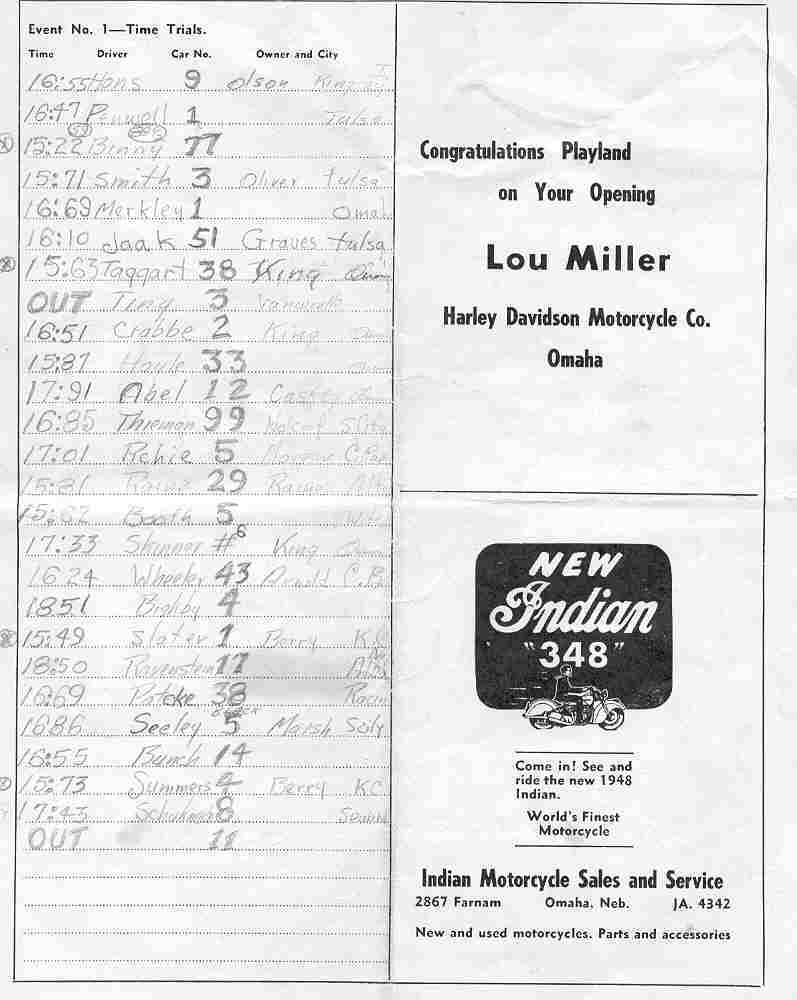 Event No. 1—Time Trials.
Time Driver Car No. Owner and City
16:55 Hans 9 Olson
16:47 Penwell 1 Tulsa
15:22 Binny 77
15:71 Smith 3 Oliver Tulsa
16:69 Merkley 1 Omah
16:10 Jaak 51 Graves Tulsa
15:63 Taggart 38 King
OUT Tiny 3
16:51 Crabbe 2 King
15:87 33
17:91 Abel 12
16:85 Thieman 99 S City
17:01 Richie 5
15:81 29
15:62 Booth 5
17:33 Skinner #6 King
16 24 Wheeler 43 Arnold C.B.
1851 Bighby 4
15:49 Slater 1 Berry K.C
18:50 Ravenstein 17
16:69 Potcke 38 Racin
1686 Seeley 5 Marsh
16:55 Bunch 14
15:73 Summers 4 Berry KC
17:43 8
OUT 11
Congratulations Playland
on Your Opening
Lou Miller
Harley Davidson Motorcycle Co.
Omaha
NEW
Indian
"348"
Come in! See and
ride the new 1948
Indian.
World's Finest
Motorcycle
Indian Motorcycle Sales and Service
2867 Farnam Omaha, Neb. JA. 4342
New and used motorcycles. Parts and accessories